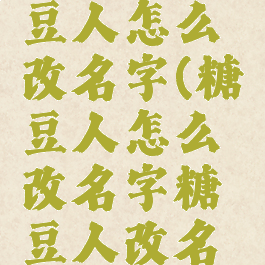 豆人怎么
改名字(糖
豆人怎么
改名字糖
豆人改名